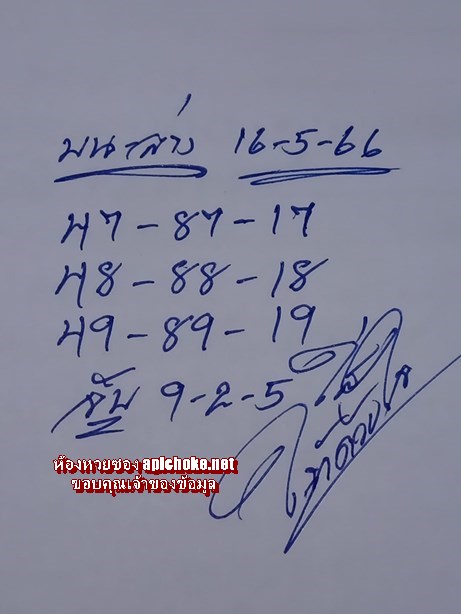 บน-ล่าง 16-5-66
47-87-17
48-88-18
49-89-19
จับ 9-2-5
ห้องหวยซอง apichoke.net
ขอบคุณเจ้าของข้อมูล